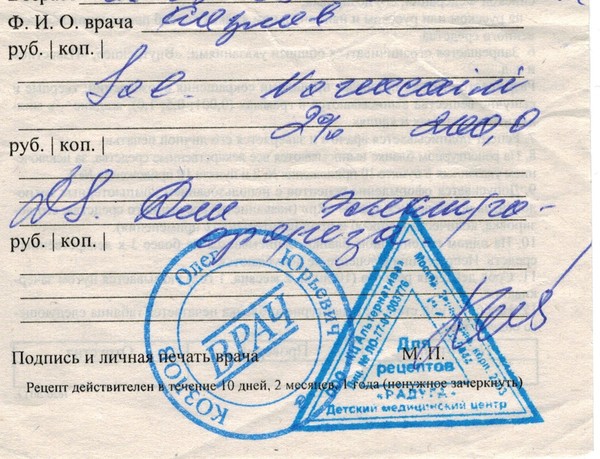 Ф. И. О. врача Козлов
руб. | коп. |
Sol. Novocaini
2% 200,0
руб. | коп. |
DS. Для электро-
руб. | коп. | фореза.
Олег Юрьевич
КОЗЛОВ
ВРАЧ
ООО «КЦ Альтернатива»
Для
рецептов
«РАДУГА»
Детский медицинский центр
Подпись и личная печать врача М. П.
Рецепт действителен в течение 10 дней, 2 месяцев, 1 года (ненужное зачеркнуть)